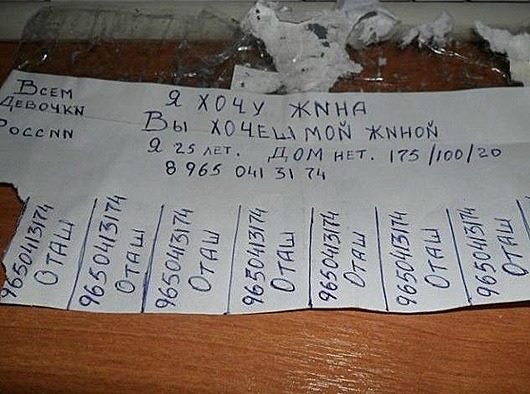 Всем
девочки
России
Я ХОЧУ ЖИНА
Вы ХОЧЕШ МОЙ ЖИНОЙ
Я 25 лет. ДОМ нет. 175/100/20
8 965 041 31 74
9650413174
ОТАШ
9650413174
ОТАШ
9650413174
ОТАШ
9650413174
ОТАШ
9650413174
ОТАШ
9650413174
ОТАШ
9650413174
ОТАШ